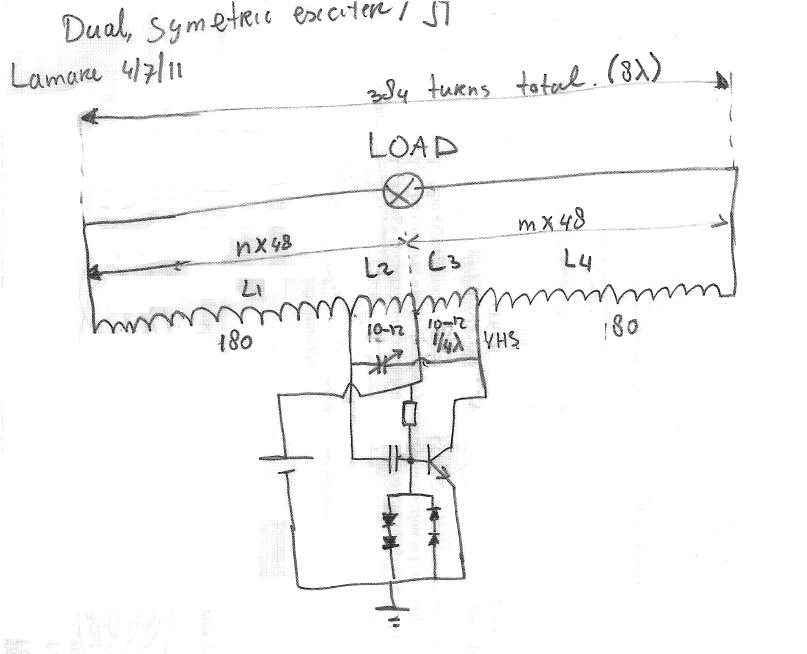 Dual, symetric exciter / JT
Lamare 4/7/11
384 turns total. (8λ)
LOAD
n×48
m×48
L1
L2
L3
L4
180
10-12
10-12
1/4λ
VHS
180